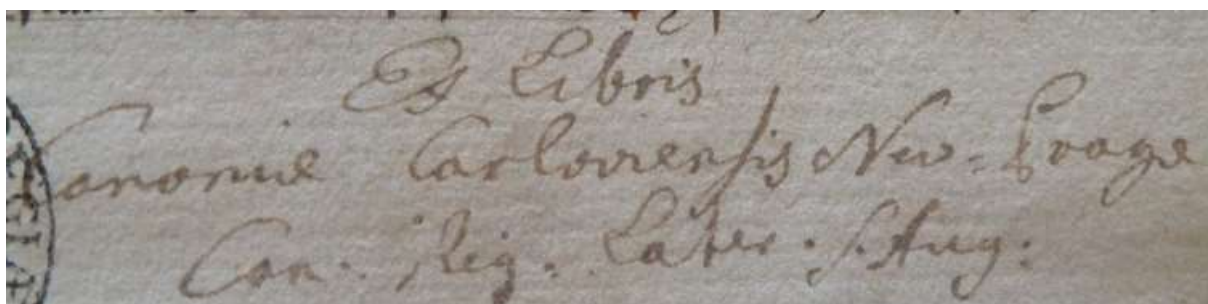 Ex Libris
Canoniæ Carloviensis Neo-Pragæ
Can. Reg. Later. S. Aug: